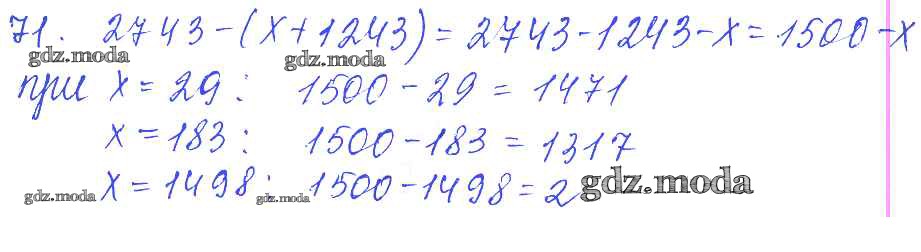 71. 2743-(x+1243)=2743-1243-x=1500-x
gdz.moda gdz.moda
при x=29: 1500-29=1471
x=183: 1500-183=1317
gdz.moda x=1498: gdz.moda 1500-1498=2 gdz.moda